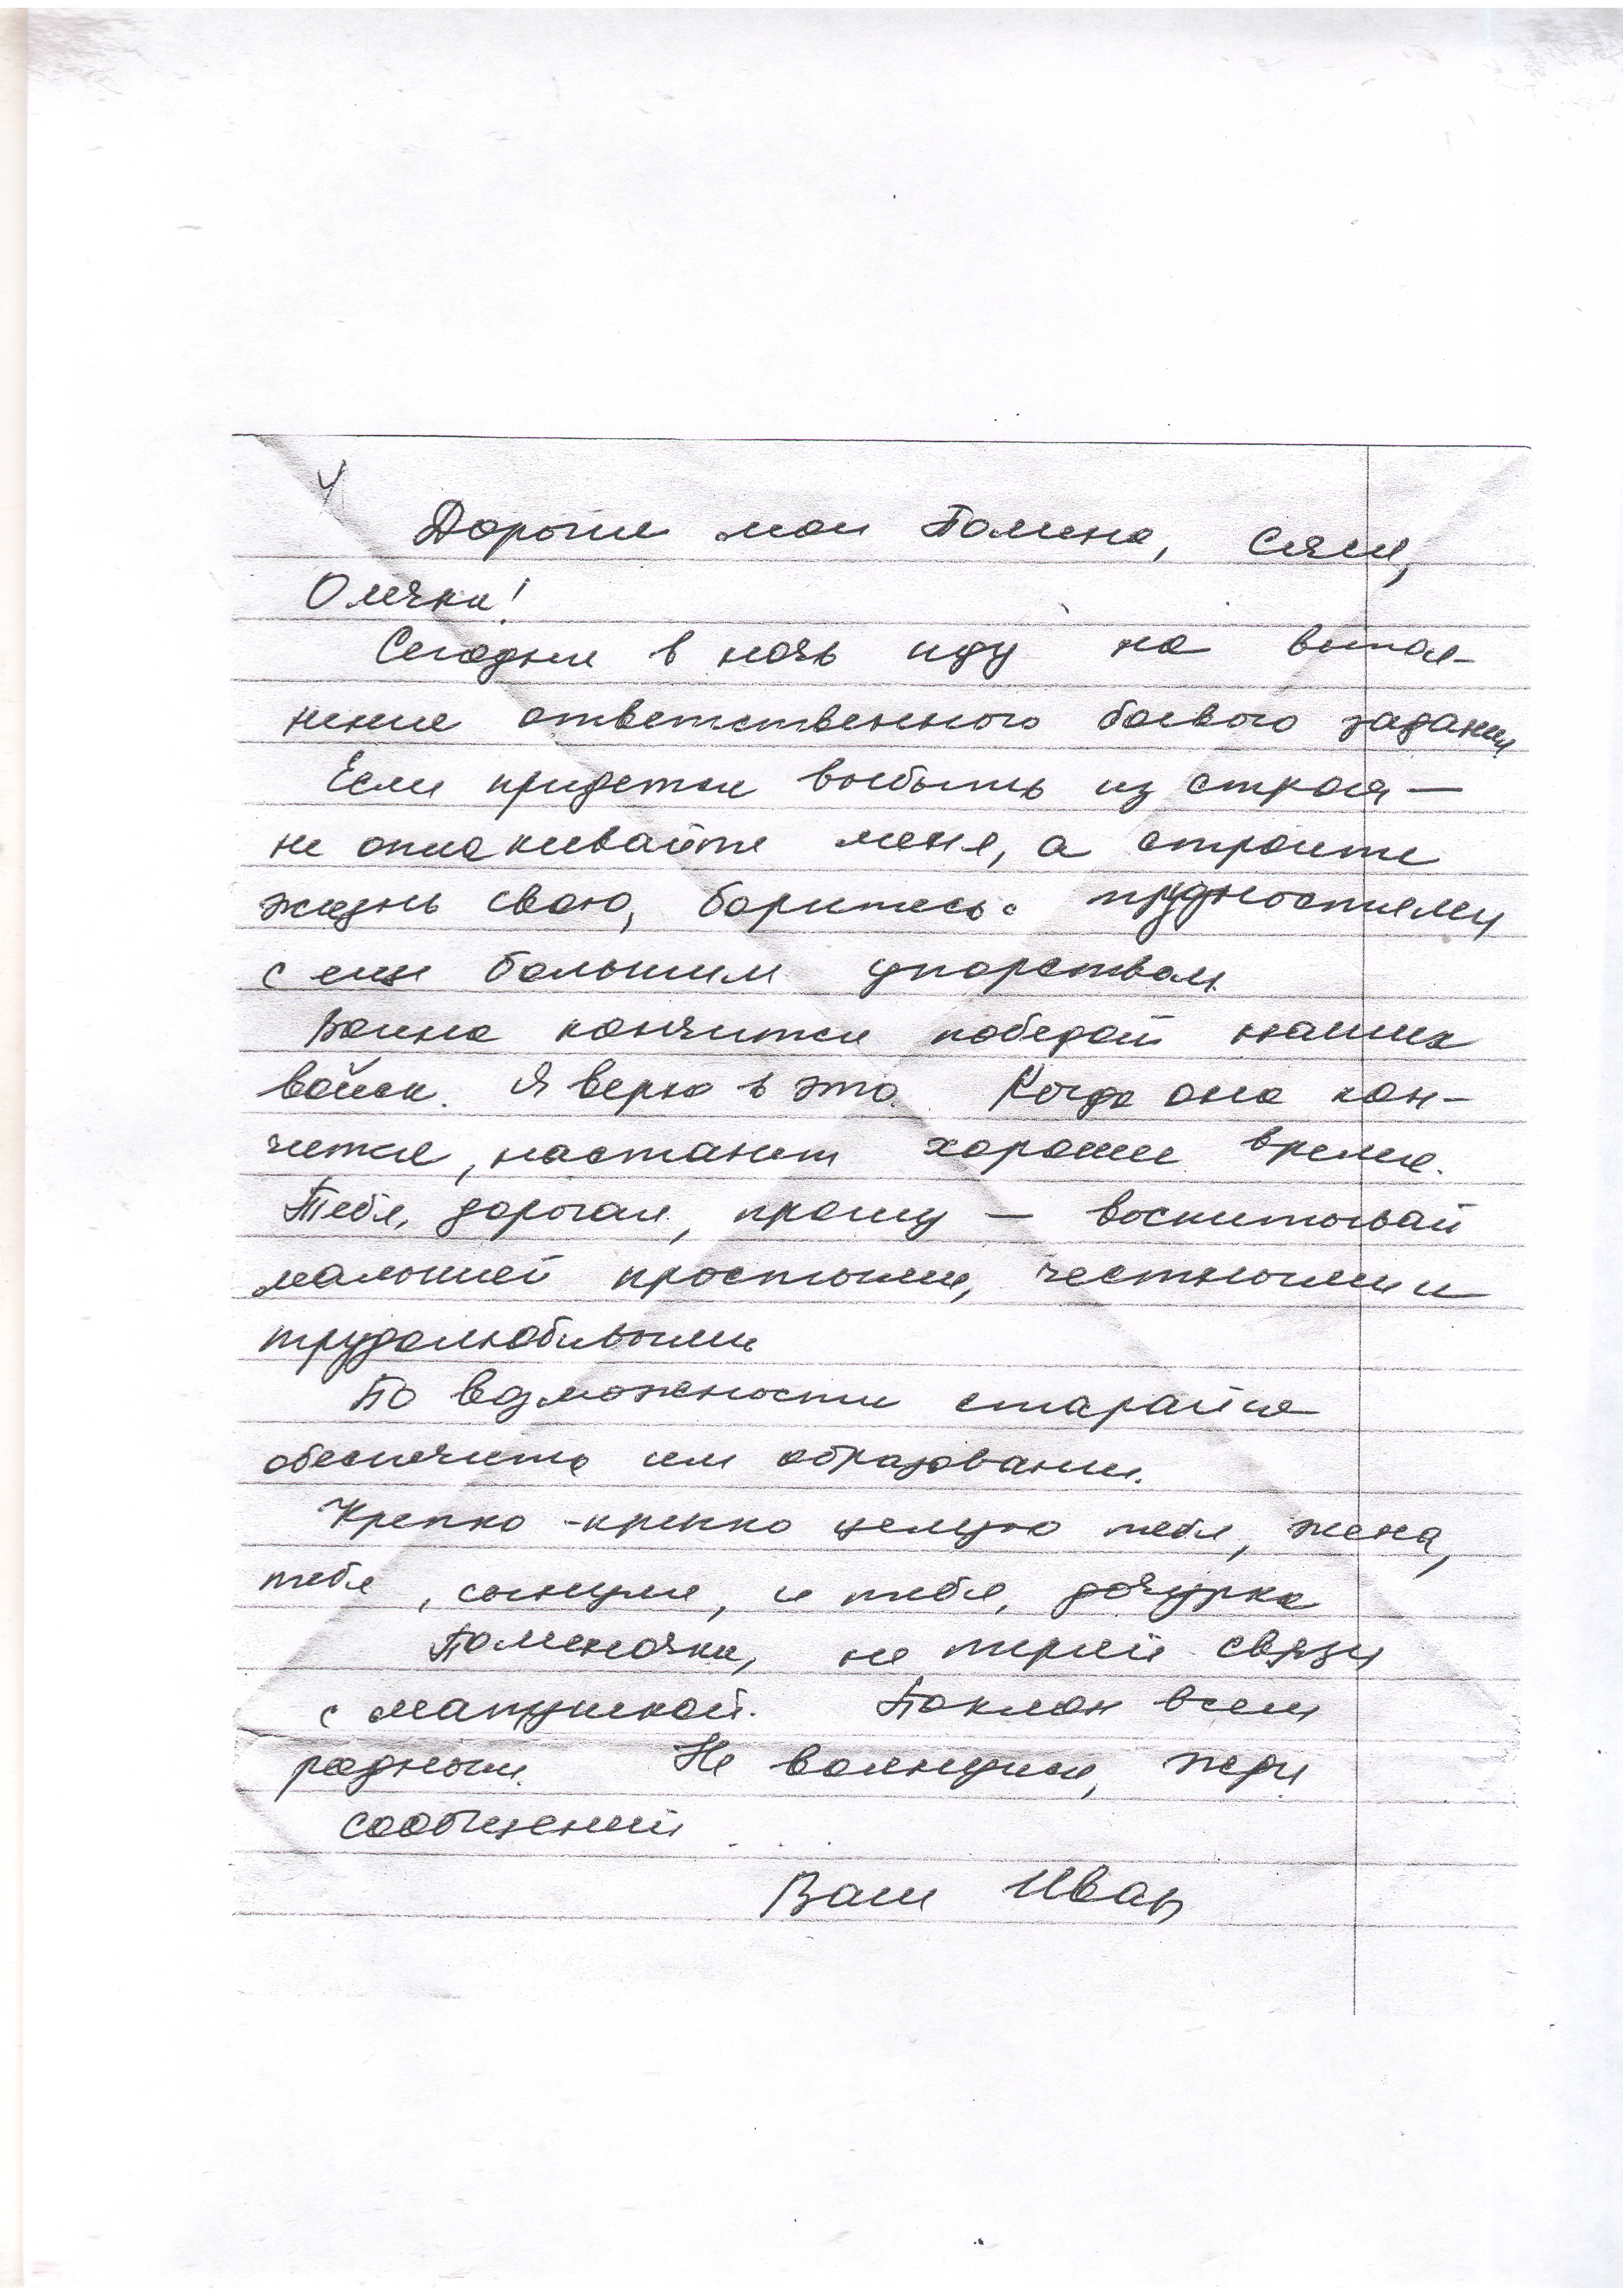 Дорогие мои Полина,
Олечка!
Сегодня в ночь иду на выпол-
нение ответственного боевого задания
Если придется выбыть из строя —
не оплакивайте меня, а стройте
жизнь свою, боритесь с трудностями
с еще большим упорством.
Война кончится победой наших
войск. Я верю в это. Когда она кон-
чится, настанет хорошее время.
Тебя, дорогая, прошу — воспитывай
малышей простыми, честными и
трудолюбивыми
По возможности старайся
обеспечить им образование.
Крепко-крепко целую тебя, жена,
тебя, сынуля, и тебя, дочурка
Полиночка, не теряй связи
с матушкой. Поклон всем
родным. Не волнуйся, жди
сообщений
Ваш Иван